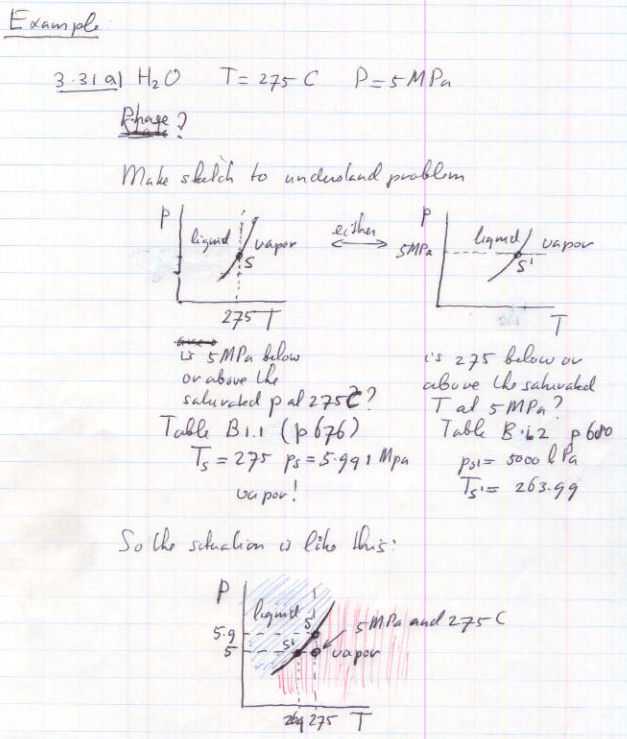 Example
3.31 a) H2O T = 275 C P = 5 MPa
Phase?
Make sketch to understand problem
P liquid vapor S 275 T
either
P 5MPa liquid vapor S' T
is 5 MPa below
or above the
saturated p at 275 C?
Table B1.1 (p 676)
Ts = 275 ps = 5.991 Mpa
vapor!
is 275 below or
above the saturated
T at 5 MPa?
Table B.1.2 p 680
ps' = 5000 kPa
Ts' = 263.99
So the situation is like this:
P
liquid S
5.9
5 MPa and 275 C
5 S' vapor
264 275 T